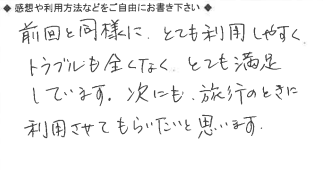 ◆ 感想や利用方法などをご自由にお書き下さい ◆
前回と同様に、とても利用しやすく
トラブルも全くなく、とても満足
しています。次にも、旅行のときに
利用させてもらいたいと思います.